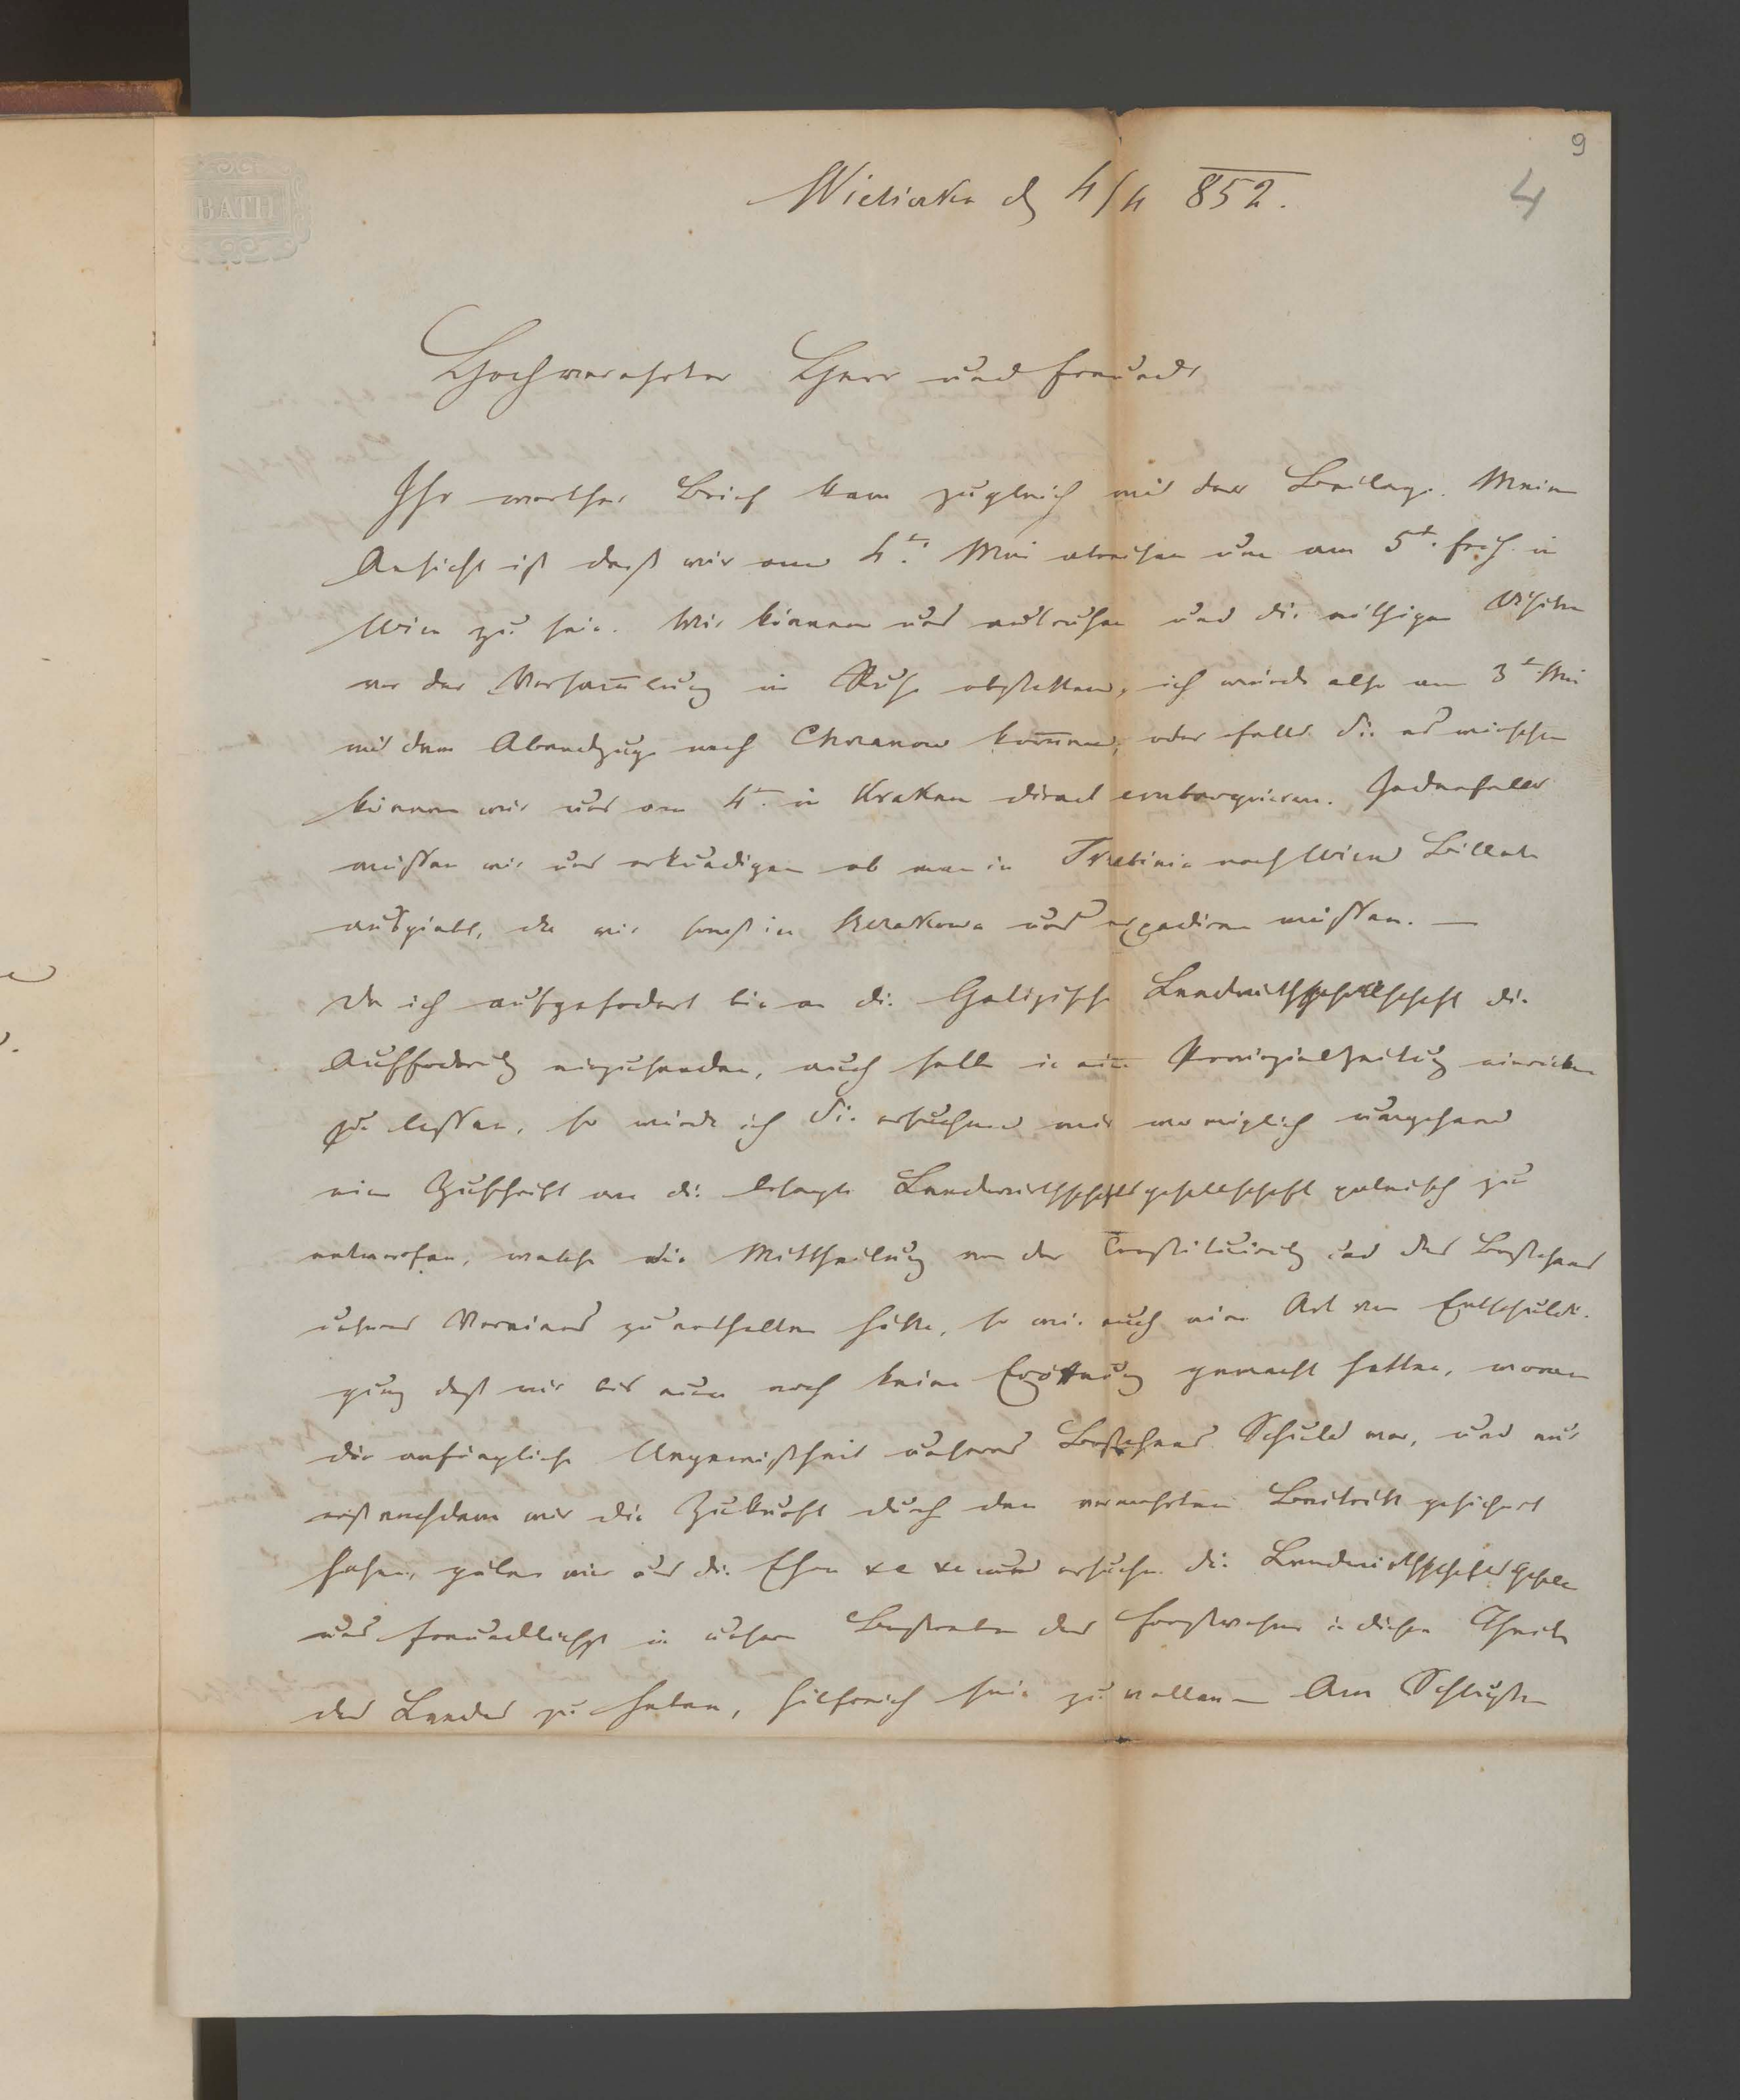 9
4
BATH
Wieliczka d 4/4 852.
Hochverehrter Herr und Freund
Ihr werther Brief kam zugleich mit der Beilage. Meine
Ansicht ist daß wir am 4t. Mai abreisen um am 5t. früh in
Wien zu sein. Wir können uns ausruhen und die nöthigen Visiten
vor der Versam̅lung in Ruhe abstatten, ich würde also am 3t Mai
mit dem Abendzuge nach Chrzanow kom̅en, oder falls Sie es wünschen
können wir uns am 4t. in Krakau direct embarquiren. Jedenfalls
müssen wir uns erkundigen ob man in Trzebinia nach Wien Billete
ausgiebt, da wir sonst in Szczakowa uns expediren müssen. —
Da ich aufgefodert bin an die Galizische Landwirthschgesellschaft die
Auffoderung einzusenden, auch selbe in eine Provinzialzeitung einrücken
zu lassen, so würde ich Sie ersuchen mir wo möglich umgehend
eine Zuschrift an die besagte Landwirthschaftsgesellschaft polnisch zu
entwerfen, welche die Mittheilung von der Constituirung und des Bestehens
unseres Vereines zu enthalten hätte, so wie auch eine Art von Entschuldi-
gung daß wir bis nun noch keine Eröffnung gemacht hatten, woran
die anfängliche Ungewißheit unseres Bestehens Schuld war, und nur
erst nachdem wir die Zukunft durch den vermehrten Beitritt gesichert
sahen, geben wir uns die Ehre xc xc und ersuchen die Landwirthschaftsgesell
uns freundlichst in unsern Bestreben das Forstwesen in diesem Theile
des Landes zu heben, hilfreich sein zu wollen — Am Schlusse